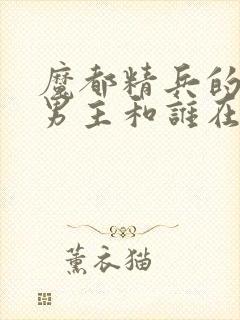 魔都精兵的
男主和誰在
薰衣猫